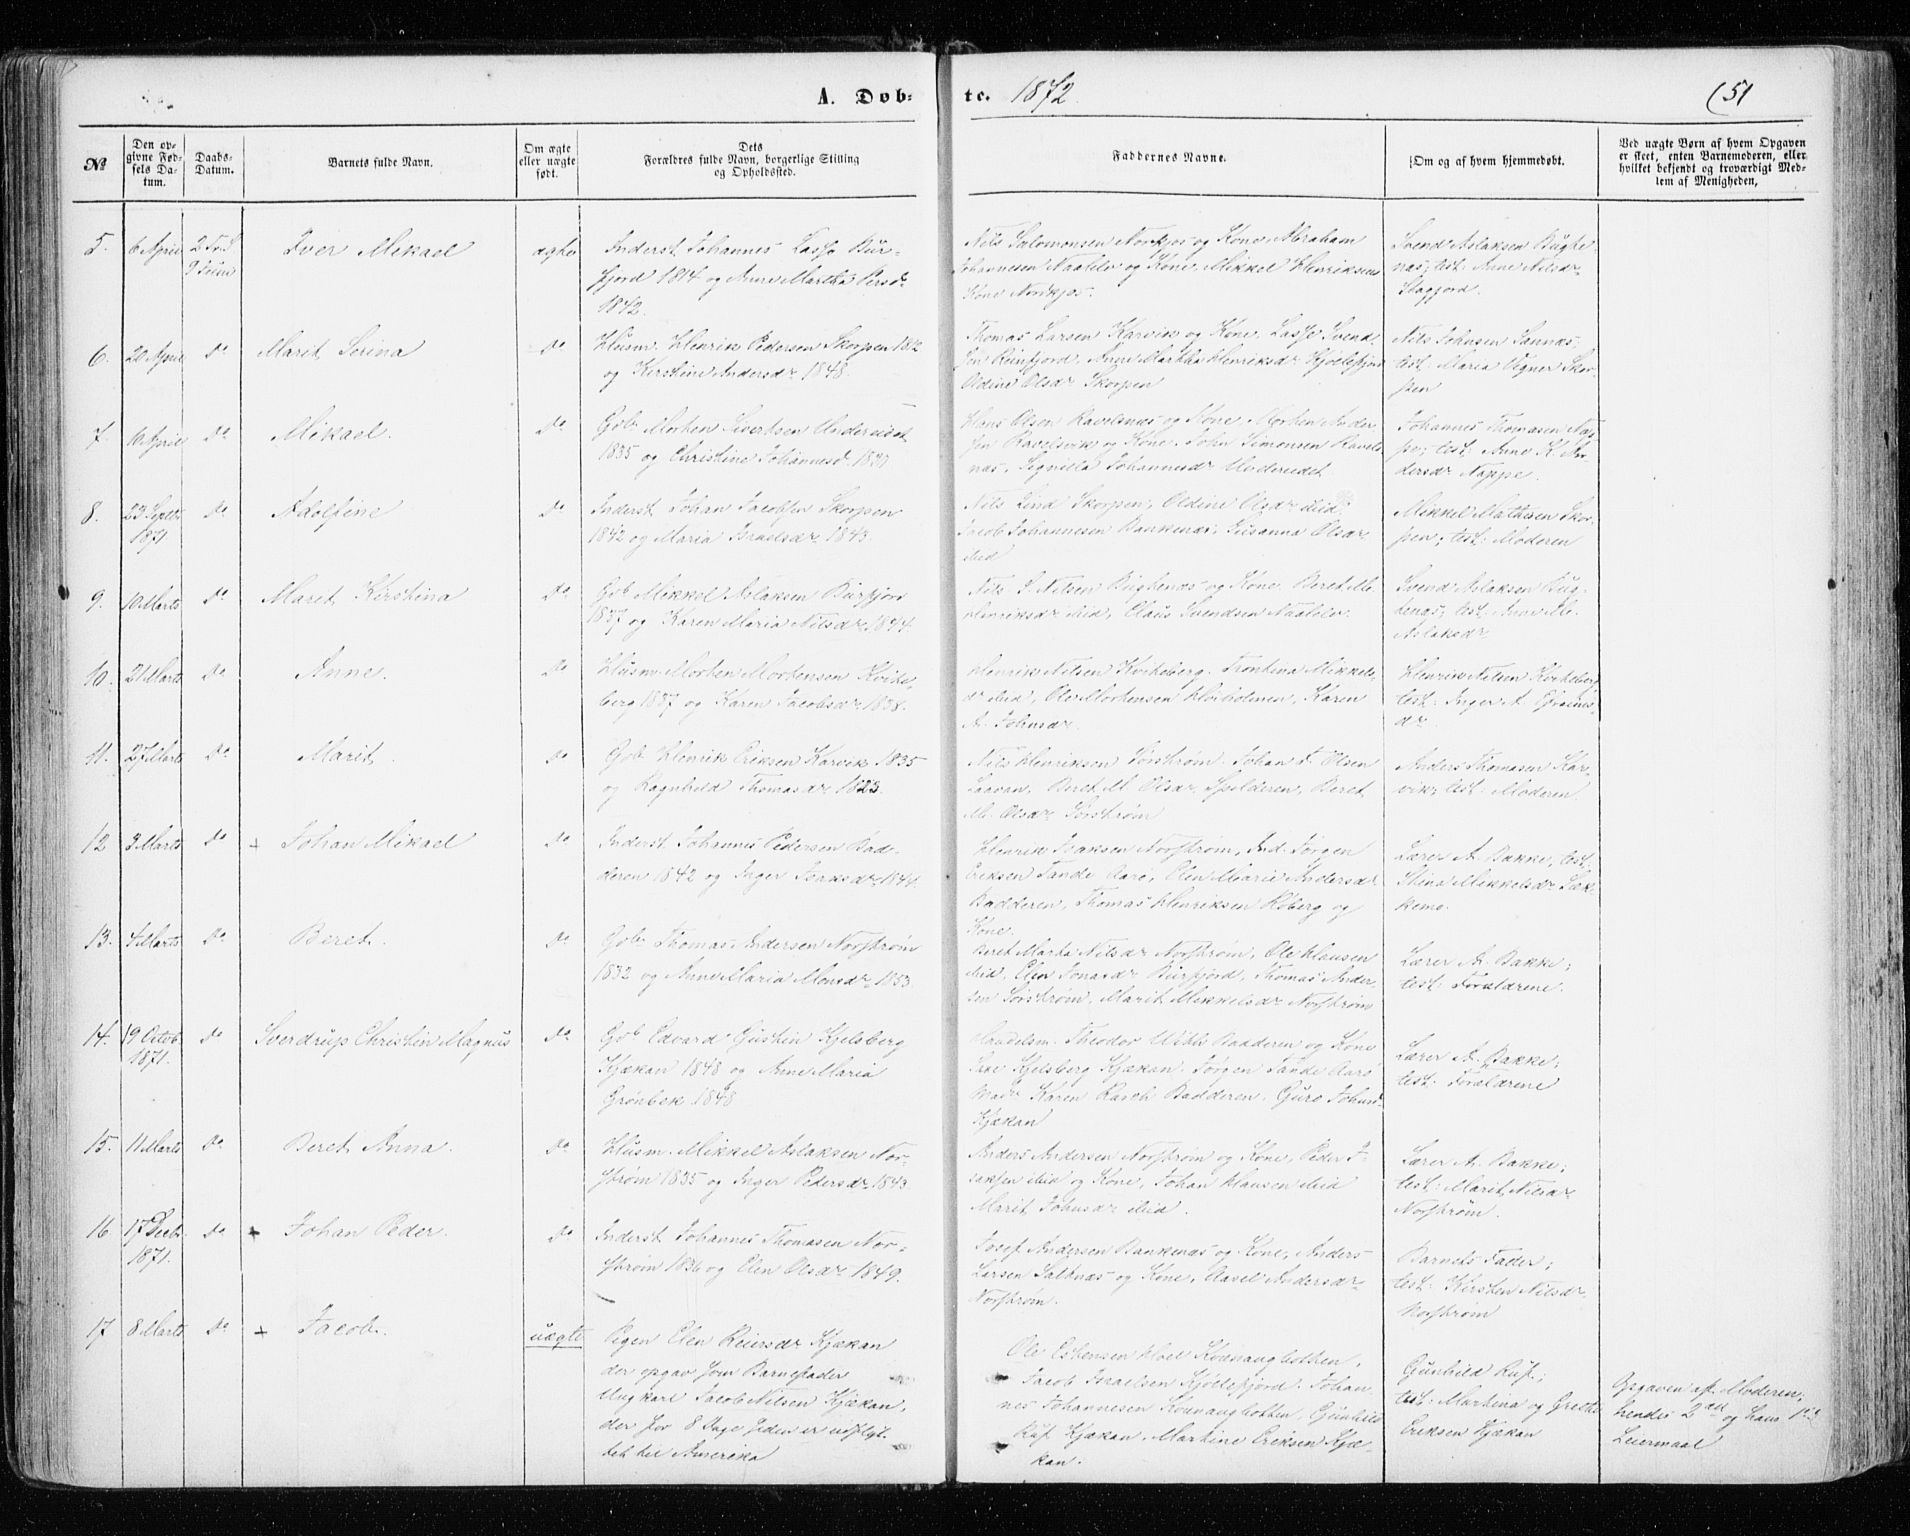 A. Døb-
te. 1872.
(51
№
Den op-
givne Fød-
sels Da-
tum.
Daabs-
Datum.
Barnets fulde Navn.
Om ægte
eller uægte
født.
Dets
Forældres fulde Navn, borgerlige Stilling
og Opholdssted.
Faddernes Navne.
Om og af hvem hjemmedøbt.
Ved uægte Børn af hvem Opgaven
er skeet, enten Barnemoderen, eller
hvilket bekjendt og troværdigt Med-
lem af Menigheden,
5. 6 April
Iver Mikael
ægte
Inderst Johannes Lasse Bur-
fjord 1814 og Anne Martha Persdr
1842.
Nils Salomonsen og Kone, Abraham
Johannesen og Kone, Mikkel Henriksens
Kone
Svend Aslaksen Bugte-
nas; test: Anne Nilsdr
6. 20 April Do
Marit Serina
Do
Husm. Henrik Pedersen Skorpen
og Kirstine Andersdr 1848.
Thomas Larsen Karvik og Kone, Lasse Svend-
sen Reinfjord, Anne Martha Henriksdr Kjøllefjord
Oldine Olsdr Skorpen
Nils Johnsen
test: Maria Skor-
pen
7. 10 April Do
Mikael.
Do
Gbr Morten Sivertsen Undereidet
1835 og Christine Johannesdr
Hans Olsen Ravelsnæs og Kone, Morten Ander-
sen Ravelsvik og Kone, John Simonsen Ravels-
næs, Johannesdr Undereidet
Johannes Thomasen Nap-
pe; test: Anne K. An-
dersdr Nappe.
8. 23 Septbr
1871 Do
Adolfine
Do
Inderst Johan Jacobsen Skorpen
1842 og Maria Israelsdr 1843.
Nils Lind Skorpen, Oldine Olsdr ibid
Jacob Johannesen Bankenæs, Susanna Olsdr
ibid
Mikkel Mathisen Skor-
pen; test: Moderen
9. 10 Marts Do
Marit Kirstina
Do
Gbr Mikkel Aslaksen Burfjord
1837 og Karen Maria Nilsdr 1844.
Nils S. Nilsen Bugtenæs og Kone, Beret M.
Henriksdr ibid, Claus Svendsen
Svend Aslaksen Bug-
tenæs; test: Anne M.
Aslaksdr
10. 21 Marts Do
Anne.
Do
Husm. Morten Mortensen Kvite-
berg 1837 og Karen Jacobsdr 1838.
Henrik Nilsen Kviteberg, Mikkels-
dr ibid, Ole Mortensen, Karen
A. Johnsdr.
Henrik Nilsen Kviteberg
test: Inger A. Efraims-
dr
11. 27 Marts Do
Marit
Do
Gbr Henrik Eriksen Karvik 1835
og Ragnhild Thomasdr 1823.
Nils Henriksen Sørstrøm, Johan F. Olsen
Beret M. Olsdr Spilderen, Beret
M. Olsdr Sørstrøm
Anders Thomasen Kar-
vik; test: Moderen.
12 3 Marts Do
+ Johan Mikael
Do
Inderst Johannes Pedersen Bad-
deren 1842 og Inger 1844.
Henrik Isaksen Norstrøm, Ind. Jørgen
Eriksen Tande Aarø, Elen Marie Andersdr
Badderen, Thomas Henriksen Høberg og
Kone.
Lærer A. Bakke; test:
Stina Mikkelsdr Læk-
kemo.
13. 4 Marts Do
Beret.
Do
Gbr Thomas Andersen Norstrøm
1832 og Anne Maria Monsdr 1853.
Beret Marta Nilsdr Norstrøm, Ole Klausen
ibid, Elen Jonasdr Burfjord, Thomas Ander-
sen Sørstrøm, Marit Mikkelsdr Norstrøm
Lærer A. Bakke;
test: Forældrene.
14. 19 Octob.
1871. Do
Sverdrup Christin Magnus
Do
Gbr Edvard Gustin Kjelsberg
Kjækan 1848 og Anne Maria
Grønbek 1848
Handelsm. Theodor Wihl Badderen og Kone
Kjelsberg Kjækan, Jørgen Tande Aarø
Madr Karen Rasch Badderen, Guro Johnsd.
Kjækan
Lærer A. Bakke;
test: Forældrene
15. 11 Marts Do
Beret Anna.
Do
Husm. Mikkel Aslaksen Nor-
strøm 1835 og Inger Pedersdr 1843
Anders Andersen Norstrøm og Kone, Peder I-
saksen ibid og Kone, Johan Klausen ibid
Marit Johnsdr ibid.
Lærer A. Bakke;
test: Marit Nilsdr
Norstrøm.
16. 17 Decbr
1871. Do
+ Johan Peder.
Do
Inderst Johannes Thomasen Nor-
strøm 1836 og Elen Olsdr 1849.
Josef Andersen Bankenæs og Kone, Anders
Larsen Saltnæs og Kone, Aasel Andersdr
Norstrøm.
Barnets Fader;
test: Kirsten Nilsdr
Norstrøm
17 8 Marts Do
+ Jacob.
uægte
Pigen Elen Reiersdr Kjækan
der opgav som Barnefader
Ungkarl Jacob Nilsen Kjækan,
der for 8 Dage siden er udflyt-
tet til Amerika
Ole Estensen Moel Kvænangbotten,
Jacob Israelsen Kjøllefjord, Johan-
nes Johannesen Kvænangbotten, Gunhild
Ruf Kjækan, Martine Eriksen Kjæ-
kan.
Gunhild Ruf;
test: Martina og Grethe
Eriksen Kjækan
Opgaven af Moderen;
hendes 2det og hans 1ste
Leiermaal